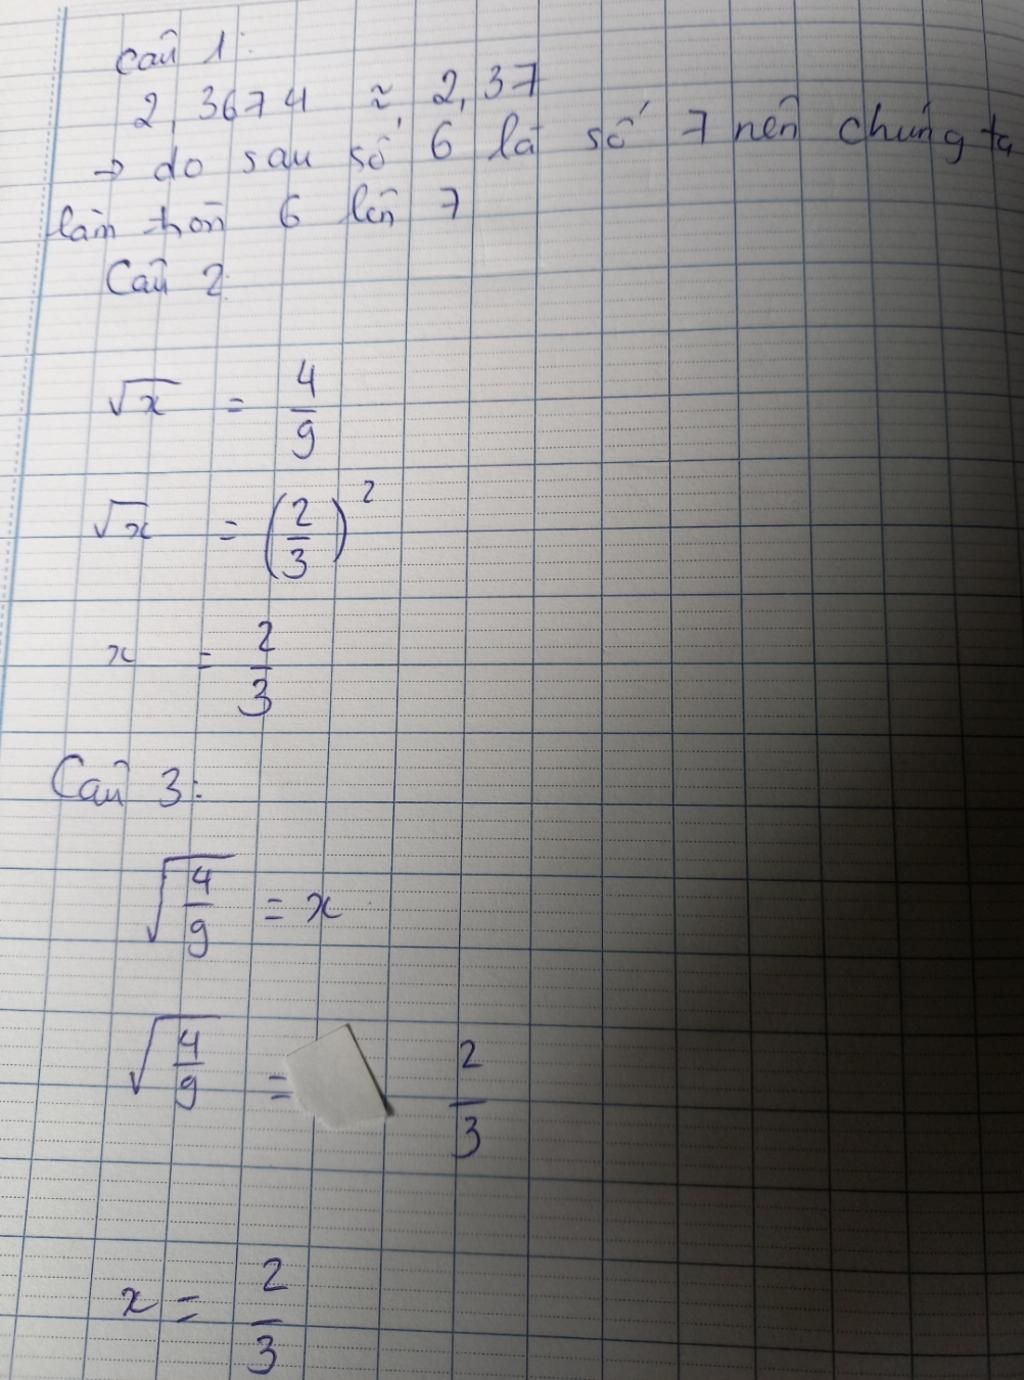 Câu 1:
2,3674 ≈ 2,37
→ do sau số 6 là số 7 nên chúng ta
làm tròn 6 lên 7
Câu 2:
√x = 4/9
√x = (2/3)²
x = 2/3
Câu 3:
√(4/9) = x
√(4/9) = 2/3
x = 2/3